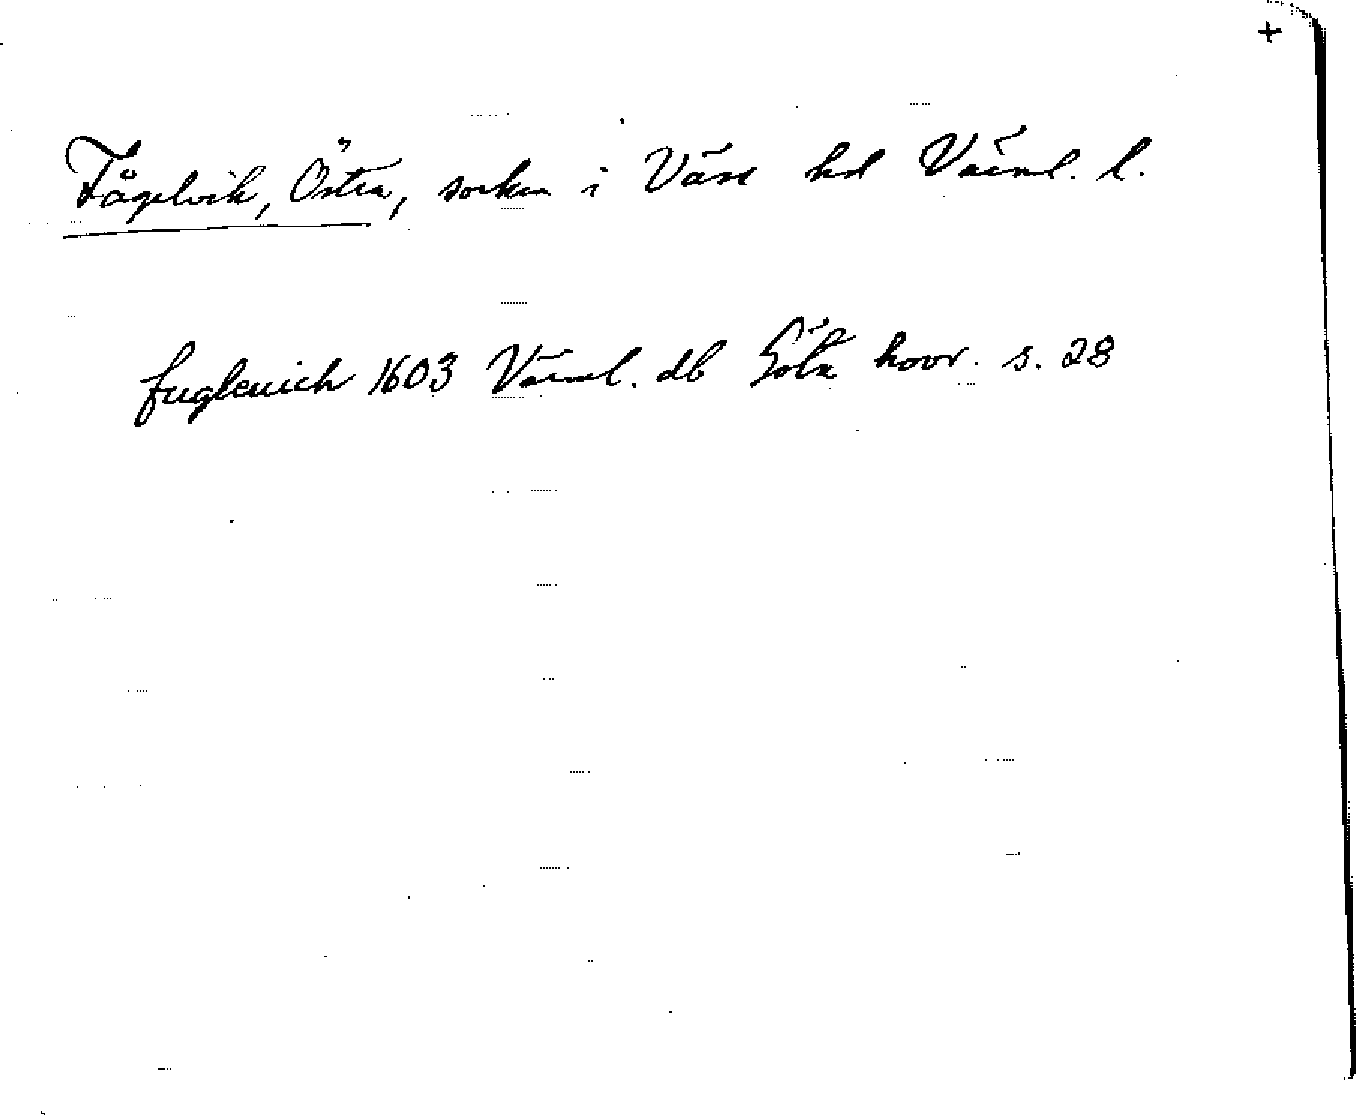 +
Fågelvik, Östra, socken i Väse hd Värml. l.
fuglewich 1603 Värml. db Göta hovr. s. 28